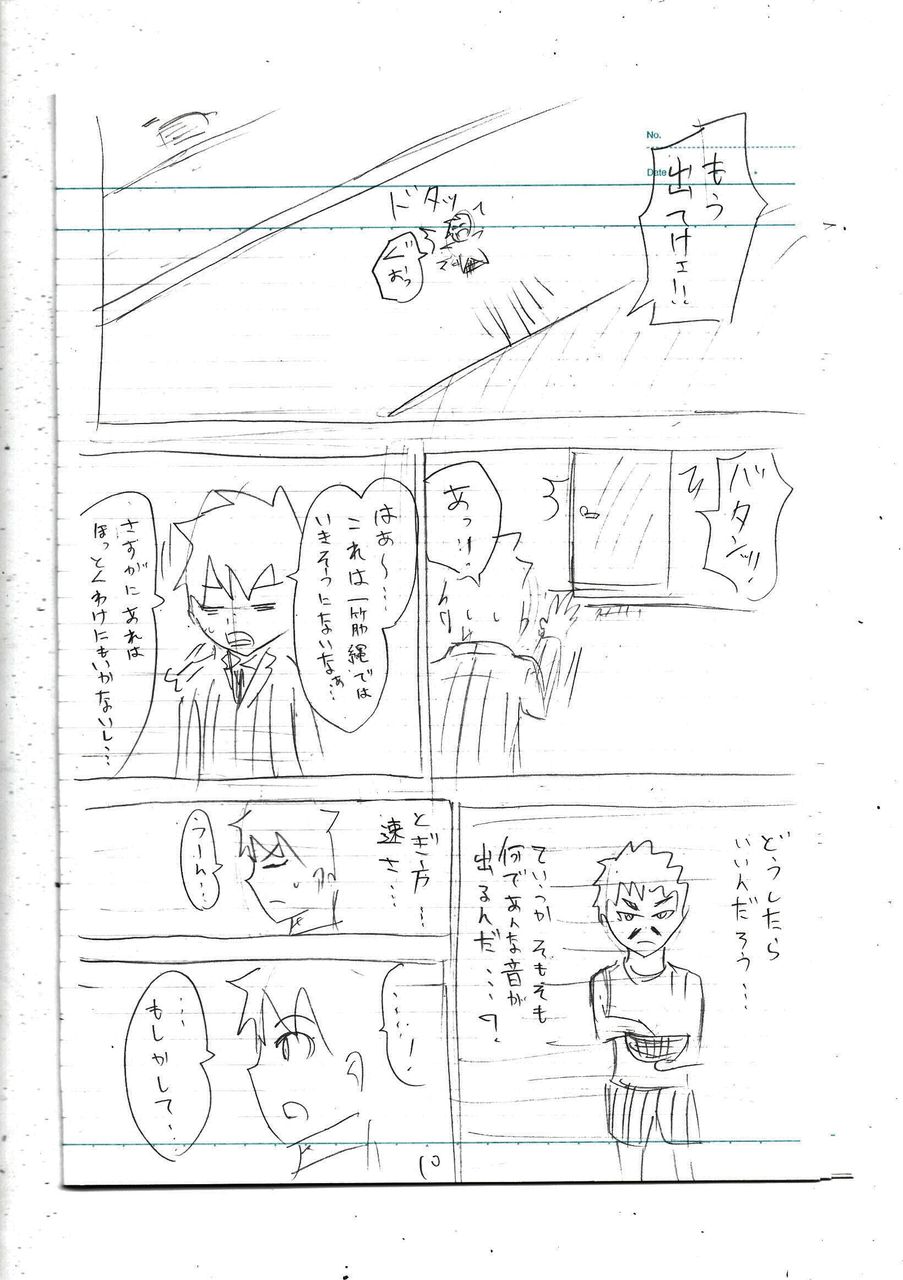 No.
Date
もう
出てけェ!!
ドタッ
ぐおっ
バタンッ!
あっ!!
はぁ〜…
これは一筋縄では
いきそうにないなぁ…
さすがにあれは
ほっとくわけにもいかないし…
どうしたら
いいんだろう…
ていうか そもそも
何であんな音が
出るんだ…?
とぎ方…
速さ…
うーん…
……!
…
もしかして…
10